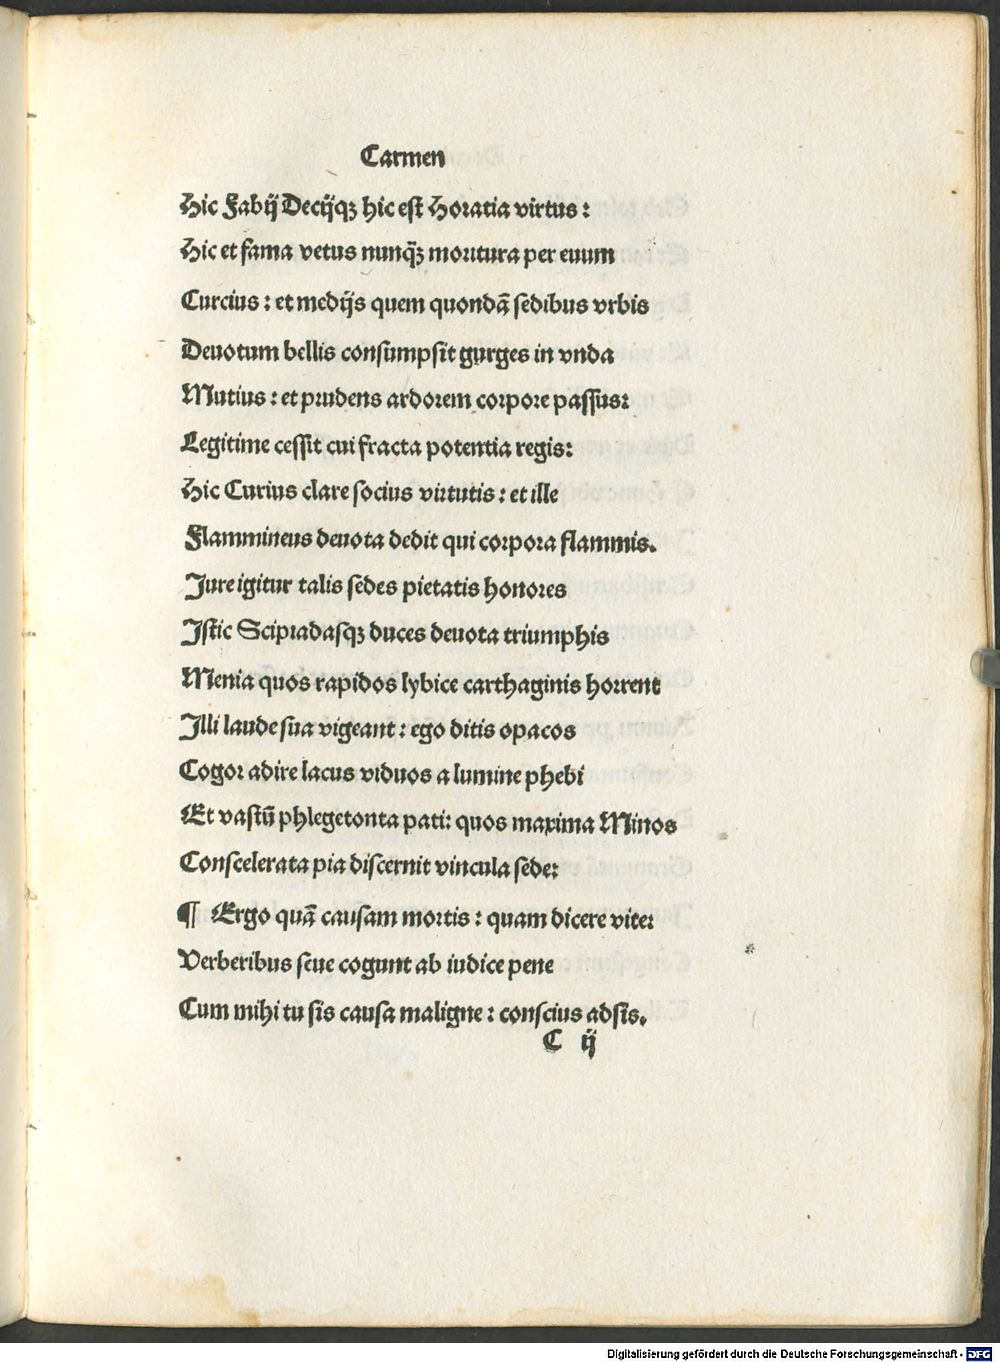 Carmen
Hic Fabij Decijqꝫ hic est Horatia virtus:
Hic et fama vetus nunq̃ꝫ moritura per euum
Curcius: et medijs quem quondã sedibus vrbis
Deuotum bellis consumpsit gurges in vnda
Mutius: et prudens ardorem corpore passus:
Legitime cessit cui fracta potentia regis:
Hic Curius clare socius virtutis: et ille
Flammineus deuota dedit qui corpora flammis.
Jure igitur talis sedes pietatis honores
Istic Scipiadasqꝫ duces deuota triumphis
Menia quos rapidos lybice carthaginis horrent
Illi laude sua vigeant: ego ditis opacos
Cogor adire lacus viduos a lumine phebi
Et vastũ phlegetonta pati: quos maxima Minos
Conscelerata pia discernit vincula sede:
¶ Ergo quã causam mortis: quam dicere vite:
Verberibus seue cogunt ab iudice pene
Cum mihi tu sis causa maligne: conscius adsis.
C ij
Digitalisierung gefördert durch die Deutsche Forschungsgemeinschaft - DFG